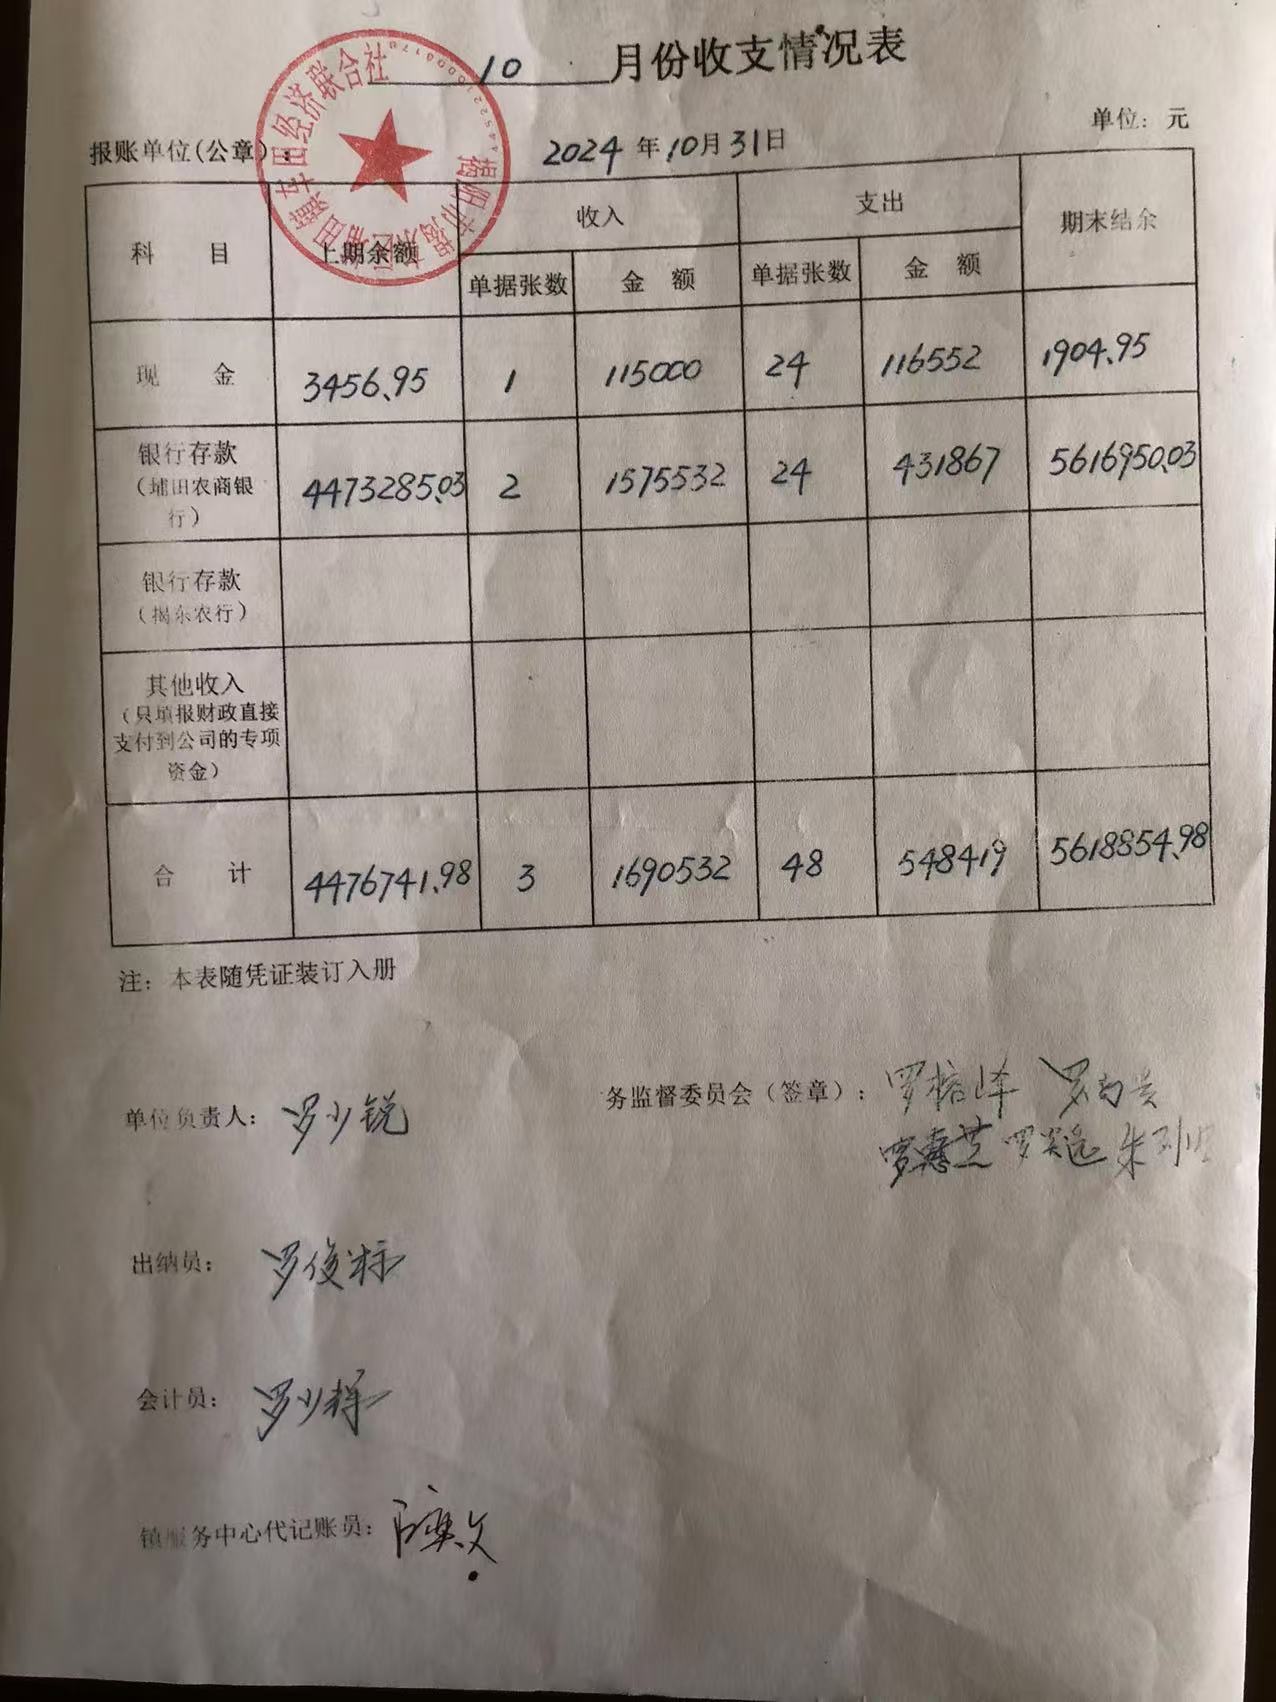 10 月份收支情况表
单位：元
报账单位(公章)： 2024 年 10月 31日
揭阳市揭东区埔田镇车田经济联合社
科 目 上期余额 收入 支出 期末结余
单据张数 金 额 单据张数 金 额
现 金 3456.95 1 115000 24 116552 1904.95
银行存款
（埔田农商银
行） 4473285.03 2 1575532 24 431867 5616950.03
银行存款
（揭东农行）
其他收入
（只填报财政直接
支付到公司的专项
资金）
合 计 4476741.98 3 1690532 48 548419 5618854.98
注：本表随凭证装订入册
单位负责人：罗少锐
务监督委员会（签章）：
出纳员：罗俊标
会计员：罗少辉
镇服务中心代记账员：